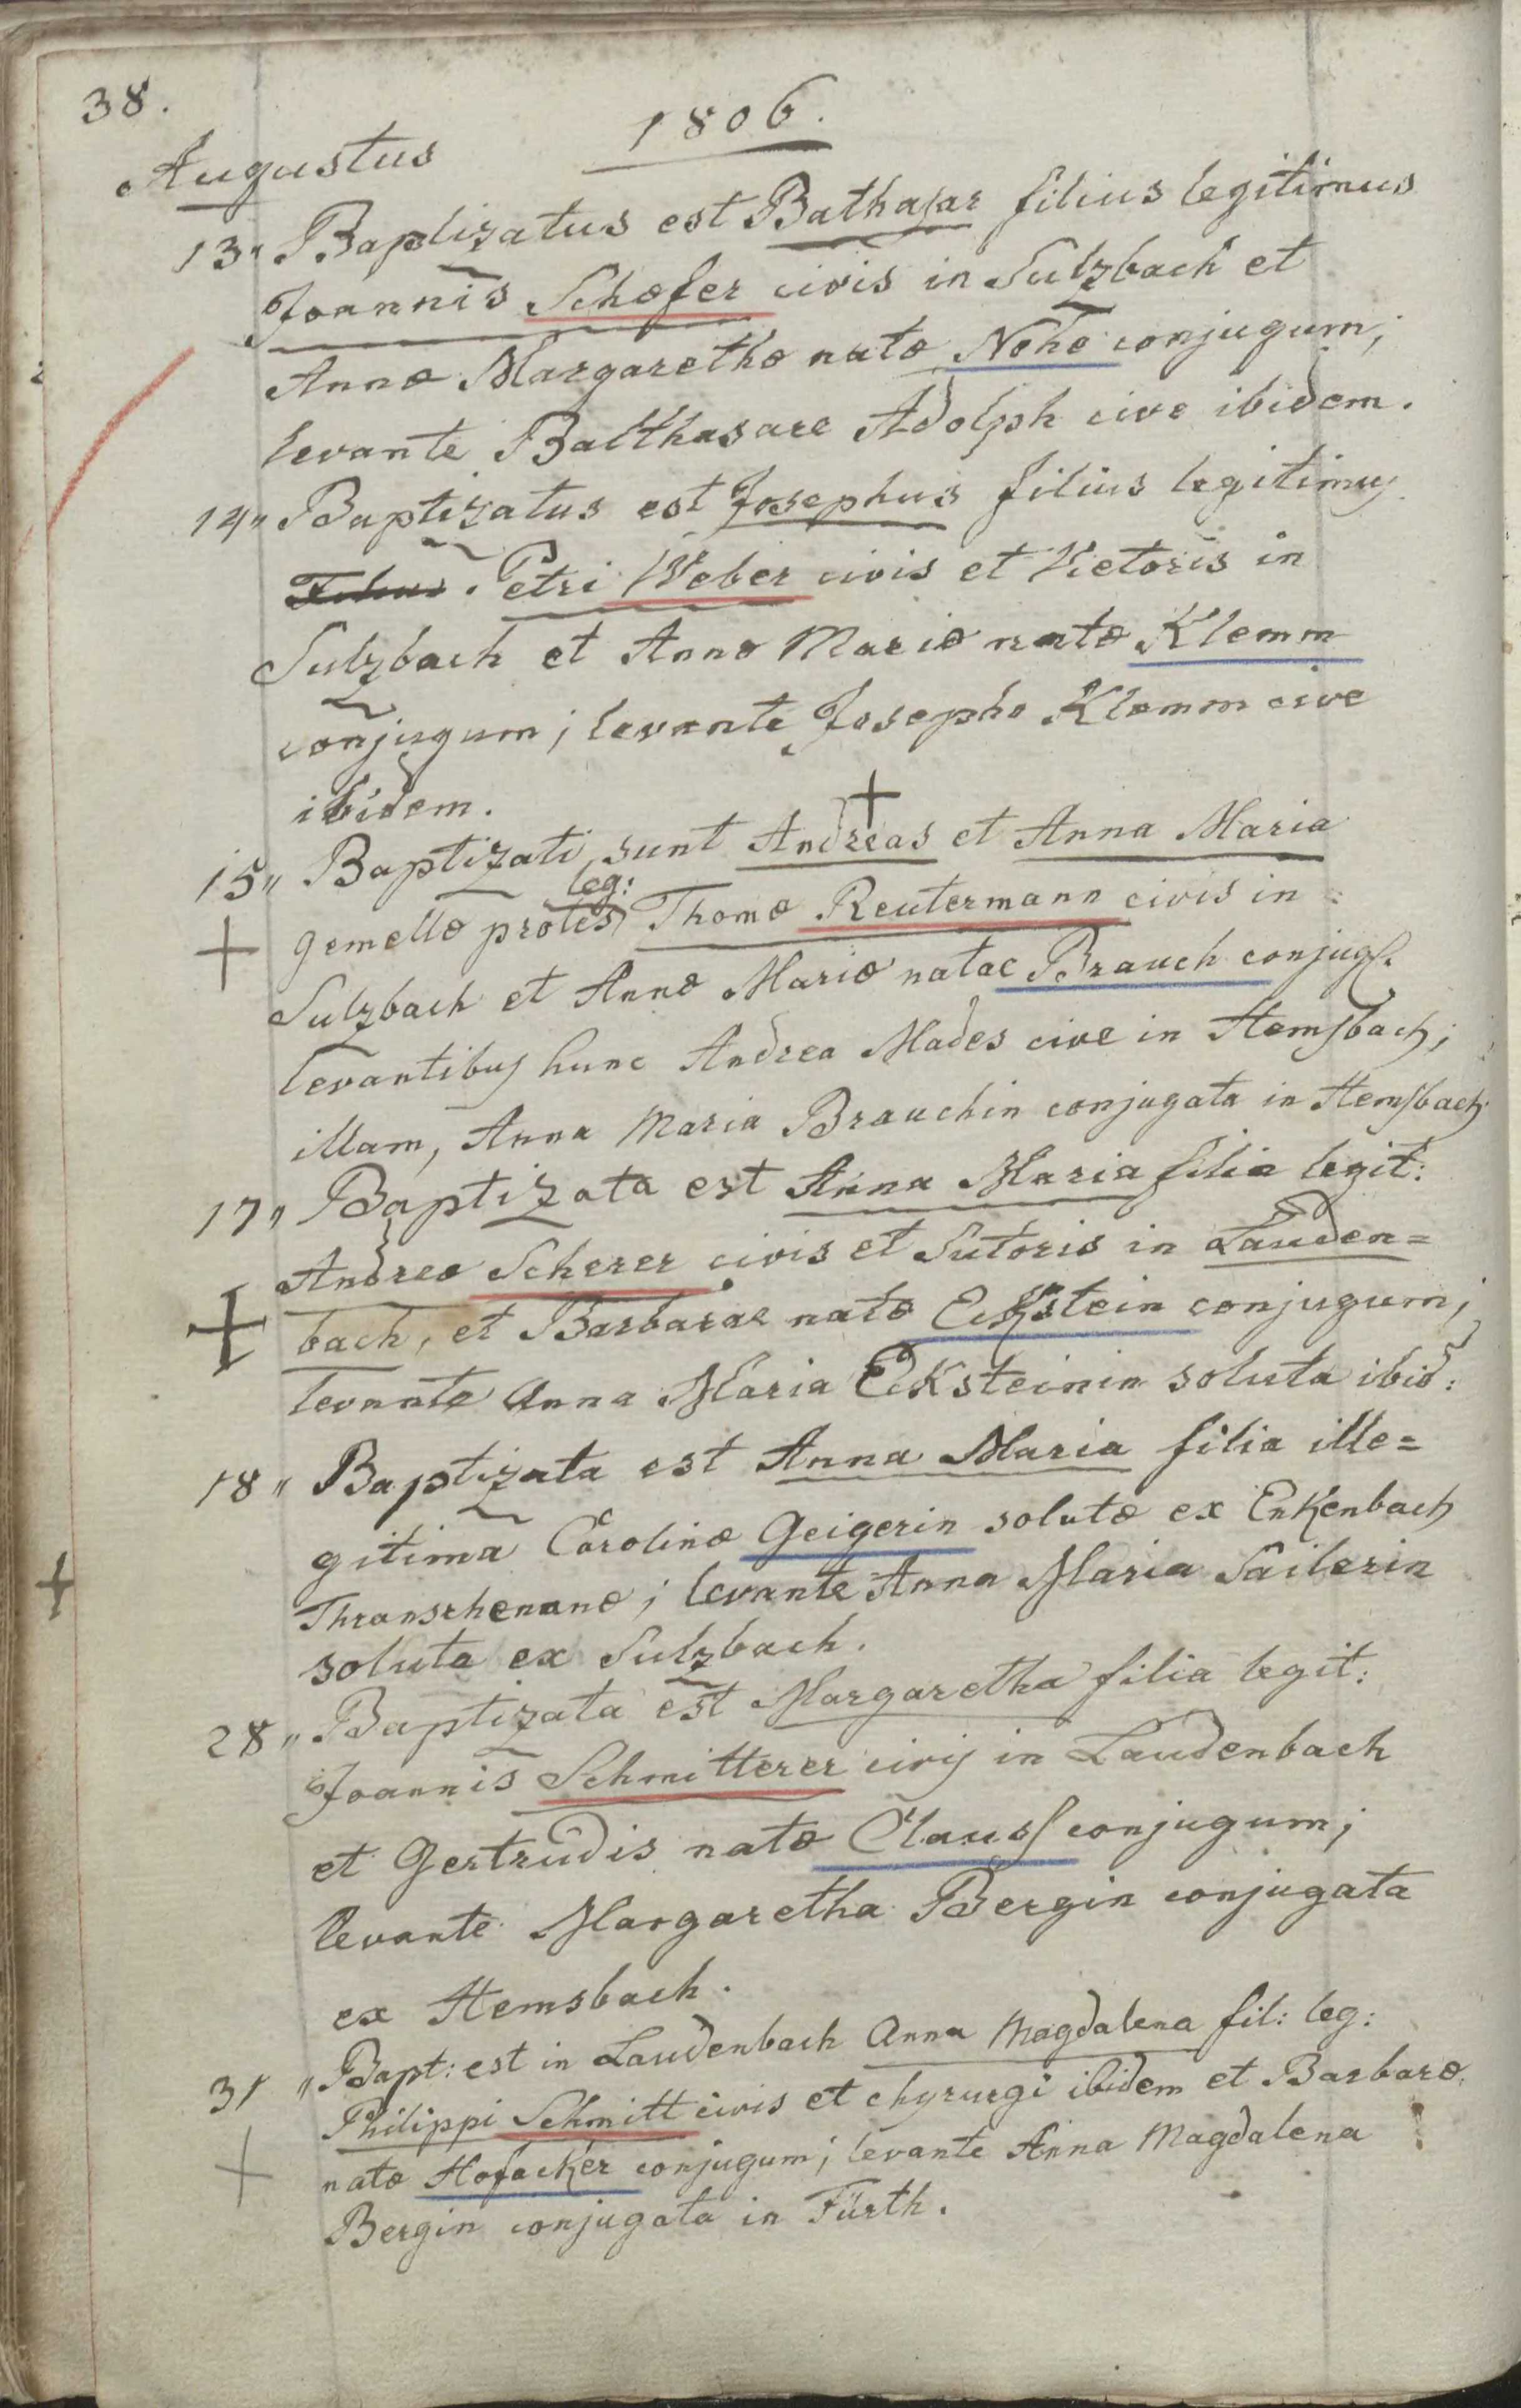 38.
1806.
Augustus
13" Baptizatus est Bathasar filius legitimus
Joannis Schæfer civis in Sulzbach et
Annæ Margarethæ natæ Nohe conjugum;
levante Balthasare Adolph cive ibidem.
14" Baptizatus est Josephus filius legitimus
Petri Weber civis et Vietoris in
Sulzbach et Annæ Mariæ natæ Klemm
conjugum; levante Josepho Klemm cive
ibidem.
15" Baptizati sunt Andreas et Anna Maria
gemellæ proles leg: Thomæ Reutermann civis in
Sulzbach et Annæ Mariæ natae Brauch conjug.
levantibus hunc Andrea Mades cive in Hemsbach;
illam, Anna Maria Brauchin conjugata in Hemsbach.
17" Baptizata est Anna Maria filia legit:
Andreæ Scherer civis et Sutoris in Lauden=
bach, et Barbarae natæ Eckstein conjugum;
levante Anna Maria Ecksteinin soluta ibid:
18" Baptizata est Anna Maria filia ille=
gitima Carolinæ Geigerin solutæ ex Enkenbach
Thransrhenanæ; levante Anna Maria Sailerin
soluta ex Sulzbach.
28" Baptizata est Margaretha filia legit:
Joannis Schmitterer civis in Laudenbach
et Gertrudis natæ Clauss conjugum;
levante Margaretha Bergin conjugata
ex Hemsbach.
31 " Bapt: est in Laudenbach Anna Magdalena fil: leg:
Philippi Schmitt civis et chyrurgi ibidem et Barbaræ
natæ Hofacker conjugum; levante Anna Magdalena
Bergin conjugata in Fürth.